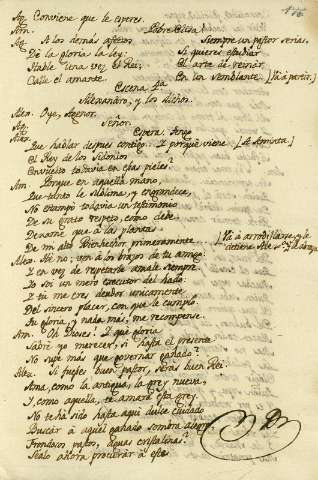 Ag. Conviene que le esperes.
Am. Pobre Elisa!
Ag. A los demas afectos Siempre un pastor serias.
Dé la gloria la ley: Si quieres estudiar
Hable una vez el Rei, El arte de reinar.
Calle el amante. En un semblante. (Vá á partir.)
Escena 4ª
Alexandro, y los dichos.
Alex. Oye, Agenor.
Ag. Señor.
Alex. Espera. Tengo
Que hablar despues contigo. I porqué viene (á Aminta)
El Rey de los Sidonios
Envuelto todavia en esas pieles?
Am. Porque en aquella mano,
Que tanto le sublima, y engrandece,
No estampó todavia un testimonio
De su grato respeto, como debe.
Dexame que á las plantas
De mi alto Bienhechor primeramente... (Vá á arrodillarse, y le detiene Alex. y le abraza
Alex. No no; ven á los brazos de tu amigo:
I en vez de respetarle amale siempre.
Yo soi un mero executor del hado:
I tu me eres deudor unicamente
Del sincero placer, con que le cumplo
Su gloria, y nada mas, me recompense.
Am. Oh Dioses! I qué gloria
Sabré yo merecer, si hasta el presente
No supe mas que governar ganado?
Alex. Si fuistes buen pastor, serás buen Rei.
Ama, como la antigua, la grey nueva,
I, como aquella, te amará esta grey.
No te há sido hasta aqui dulce cuidado
Buscar á aquel ganado sombra
Frondosos pastos, aguas cristalinas?
Sealo ahora procurar á este